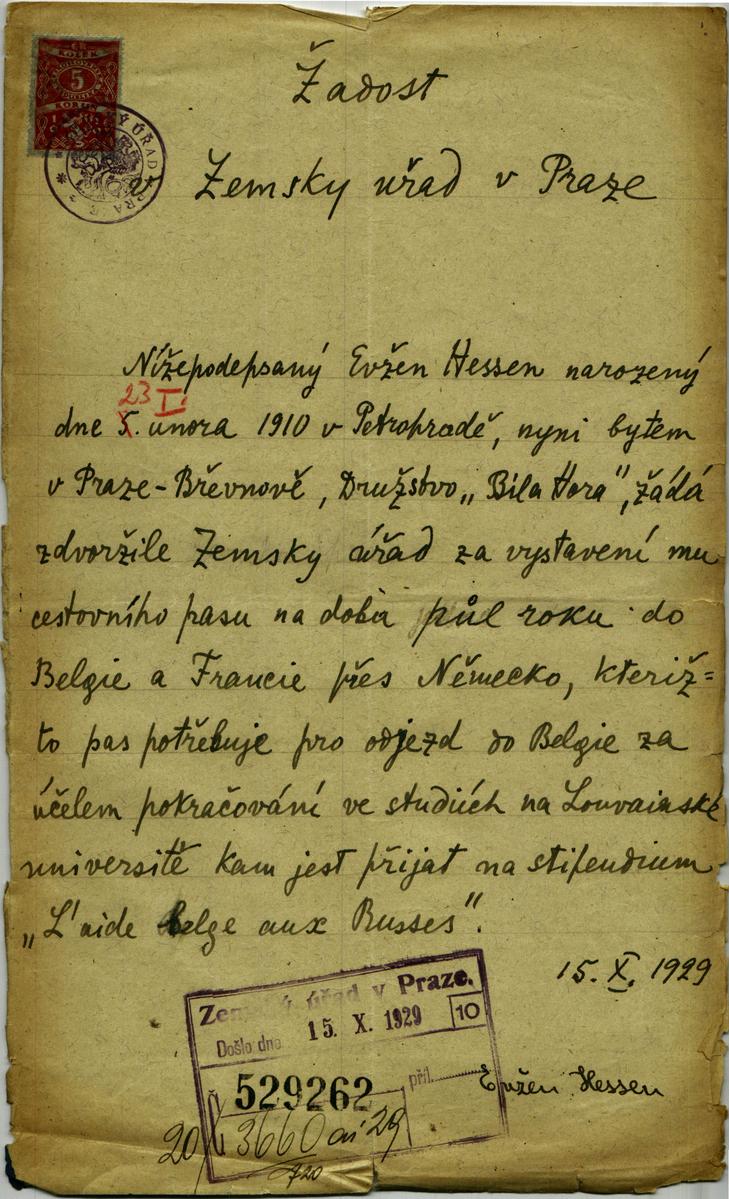 Žadost
KOLEK
5
KORUN
ÚŘAD
PRAZE
Zemsky uřad v Praze
Nížepodepsaný Evžen Hessen narozený
23 I.
dne 5. února 1910 v Petrohradě, nyni bytem
v Praze-Břevnově, Družstvo „Bila Hora", žádá
zdvořile Zemsky úřad za vystavení mu
cestovního pasu na dobu půl roku do
Belgie a Francie přes Německo, kteriž=
to pas potřebuje pro odjezd do Belgie za
účelem pokračování ve studiích na Louvainské
universitě kam jest přijat na stipendium
„L'aide belge aux Russes".
15. X. 1929
Zemský úřad v Praze.
Došlo dne 15. X. 1929 10
Č. 529262 příl.
Evžen Hessen
3660 ai 29